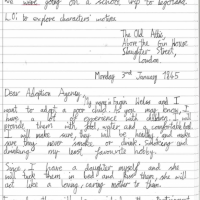 We were going on a school trip to
L.O: to explore characters' motives
The Old Attic,
Above the Gin House
Slaughter Street,
London.
Monday 3rd January 1845
Dear Adoption Agency,
My name is Fagin and I
want to adopt a poor child. As you may know, I
have a lot of experience with children. I will
provide them with food, water and a comfortable bed.
I will make sure they will be healthy and make
sure they never smoke or drink. Smoking and
drinking is our least favourite hobby.
Says I have a daughter myself and she
will tuck them in bed and feed them, she will
act like a loving, caring mother to them.